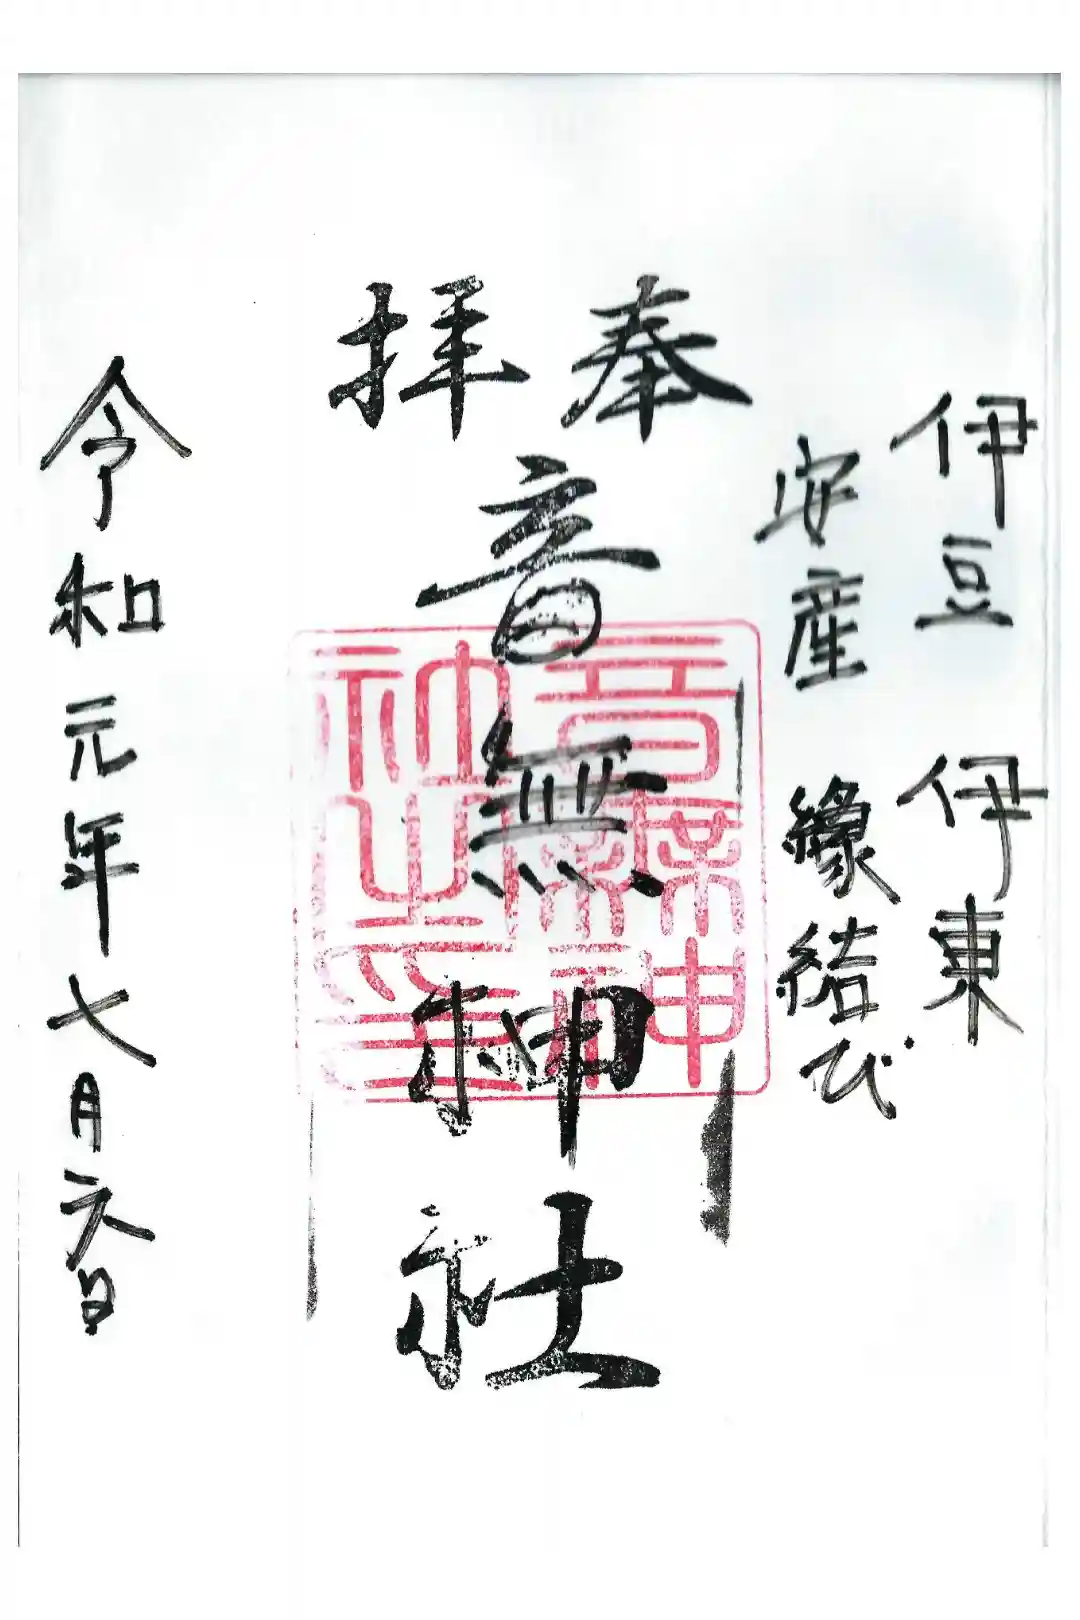 伊豆 伊東
安産 縁結び
奉拝
音無神社
音無神
社之印
令和元年七月六日